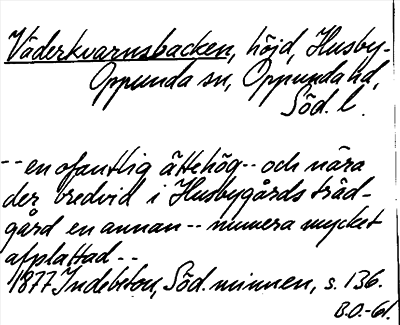 Väderkvarnsbacken, höjd, Husby-
Oppunda sn, Oppunda hd,
Söd. l.
-- en ofantlig ättehög -- och nära
der bredvid i Husbygårds träd-
gård en annan -- numera mycket
afplattad --
1877 Indebetou, Söd. minnen, s. 136.
B.O.-61.